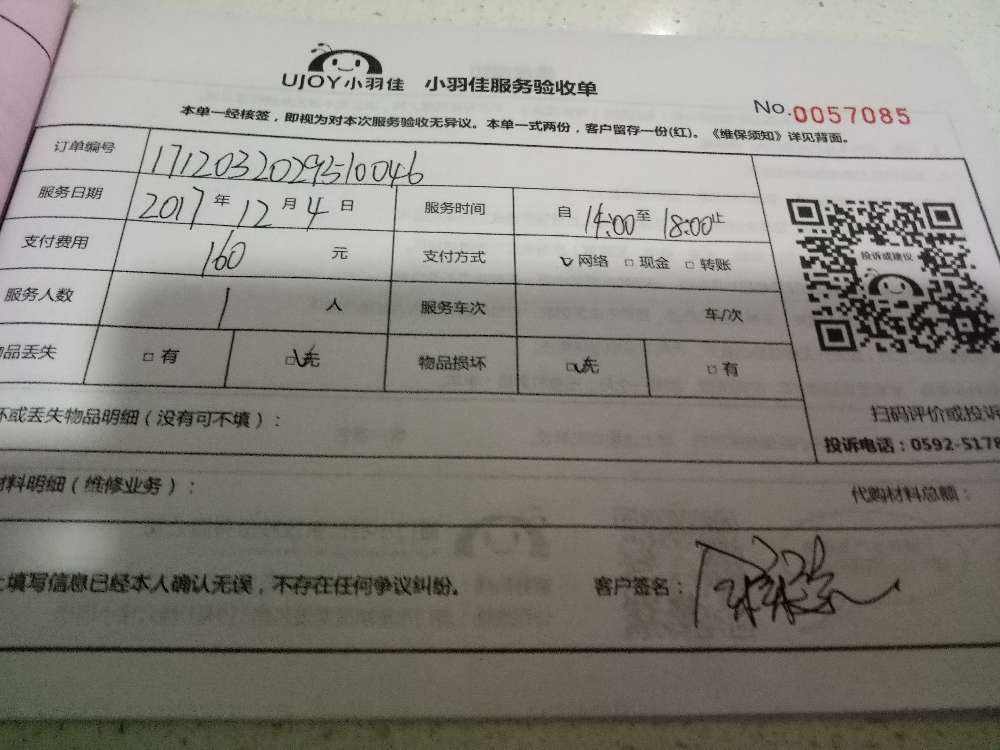 UJOY小羽佳 小羽佳服务验收单
No.0057085
本单一经核签，即视为对本次服务验收无异议。本单一式两份，客户留存一份(红)。《维保须知》详见背面。
订单编号 1712032029310046
服务日期 2017 年 12 月 4 日 服务时间 自 14:00 至 18:00 止
支付费用 160 元 支付方式 ☑ 网络 □ 现金 □ 转账
服务人数 1 人 服务车次 车/次
品丢失 □ 有 ☑ 无 物品损坏 ☑ 无 □ 有
投诉或建议
坏或丢失物品明细（没有可不填）：
扫码评价或投诉
投诉电话：0592-5178
材料明细（维修业务）： 代购材料总额：
上填写信息已经本人确认无误，不存在任何争议纠纷。 客户签名：